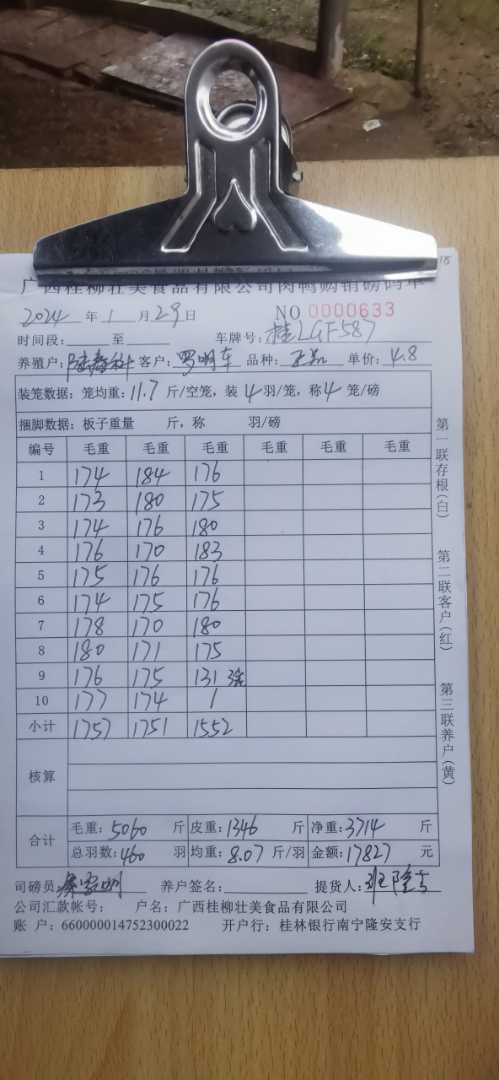 广西桂柳壮美食品有限公司肉鸭购销磅码单
2024 年 1 月 29 日 NO 0000633
时间段: 至 车牌号: 桂LGF587
养殖户: 客户: 罗明车 品种: 单价: 4.8
装笼数据: 笼均重: 11.7 斤/空笼, 装 4 羽/笼, 称 4 笼/磅
捆脚数据: 板子重量 斤, 称 羽/磅
编号 毛重 毛重 毛重 毛重 毛重 毛重
1 174 184 176
2 173 180 175
3 174 176 180
4 176 170 183
5 175 176 176
6 174 175 176
7 178 170 180
8 180 171 175
9 176 175 131 3笼
10 177 174 /
小计 1757 1751 1552
核算
合计 毛重: 5060 斤 皮重: 1346 斤 净重: 3714 斤
总羽数: 460 羽 均重: 8.07 斤/羽 金额: 17827 元
司磅员: 养户签名: 提货人:
公司汇款帐号: 户名: 广西桂柳壮美食品有限公司
账 户: 660000014752300022 开户行: 桂林银行南宁隆安支行
第一联存根(白)
第二联客户(红)
第三联养户(黄)